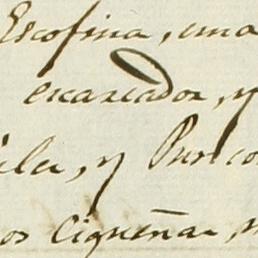 Escofina, una
encarcador, y
y Punzo
os Cigueñar,